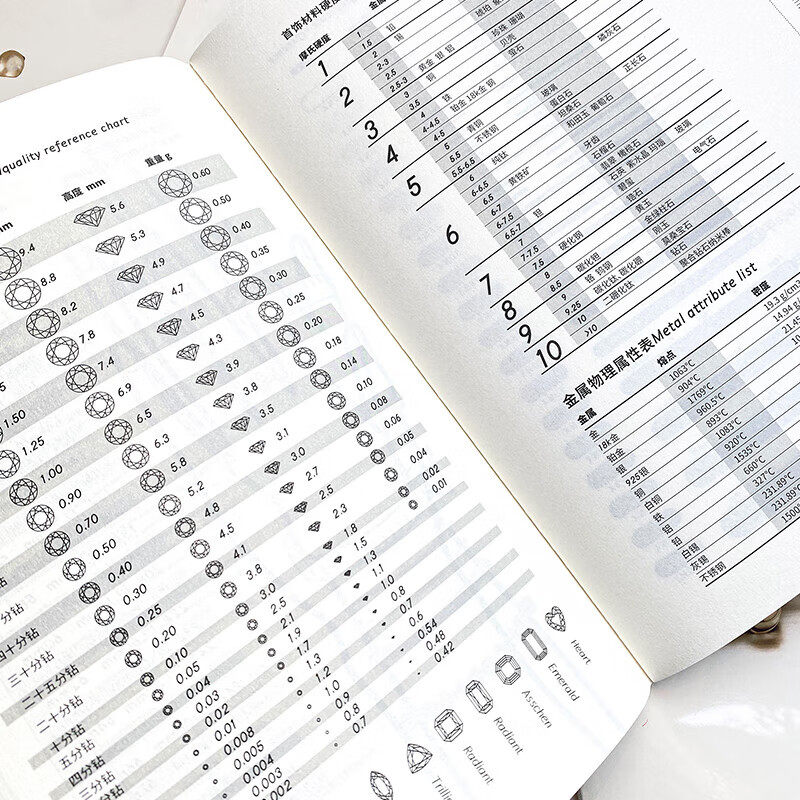 /quality reference chart
高度 mm 重量 g
9.4 5.6 0.60
8.8 5.3 0.50
8.2 4.9 0.40
7.8 4.7 0.35
1.50 7.4 4.5 0.30
1.25 6.9 4.3 0.25
1.00 6.5 3.9 0.20
0.90 6.3 3.8 0.18
0.70 5.8 3.5 0.14
分钻 0.50 5.2 3.1 0.10
四十分钻 0.40 4.8 3.0 0.08
三十分钻 0.30 4.5 2.7 0.06
二十五分钻 0.25 4.1 2.5 0.05
二十分钻 0.20 3.8 2.3 0.04
十分钻 0.10 3.0 1.8 0.02
五分钻 0.05 2.5 1.5 0.01
四分钻 0.04 2.1 1.3
三分钻 0.03 1.9 1.1
0.02 1.7 1.0
0.01 1.3 0.8
0.008 1.2 0.7
0.005 1.0 0.6
0.004 0.9 0.54
0.003 0.8 0.48
0.002 0.7 0.42
Radiant
Radiant
Asschen
Emerald
Heart
首饰材料硬度
摩氏硬度 金属
1 1 铅
1.5 锡
2 2
2-2.5 黄金 银 铝
2.5-3 铜
3 3
3.5 铁
4 4 铂金 18k金 钢
4-4.5
4-5 青铜
5 5 不锈钢
5.5
5.5-6 纯钛
6 6
6-6.5 黄铁矿
6.5
6-7
6.5-7 钽
7 7
7-7.5 硬化钢
8 8 碳化铍
8.5 铬 钨钢
9 9 碳化钛 碳化硼
9.25 二硼化钛
10 10
>10
珍珠 珊瑚
贝壳
萤石
磷灰石
玻璃
蛋白石
正长石
坦桑石
和田玉 葡萄石
牙齿
石榴石
玻璃
翡翠 橄榄石
石英 紫水晶 玛瑙
碧玺
电气石
锆石
黄玉
金绿柱石
刚玉
莫桑宝石
钻石
聚合钻石纳米棒
金属物理属性表Metal attribute list
金属 熔点 密度
金 1063°C 19.3 g/cm
18k金 904°C 14.94 g
铂金 1769°C 21.45
银 960.5°C
925银 893°C
铜 1083°C
白铜 920°C
铁 1535°C
铝 660°C
铅 327°C
白锡 231.89°C
灰锡 231.89°
不锈钢 1500